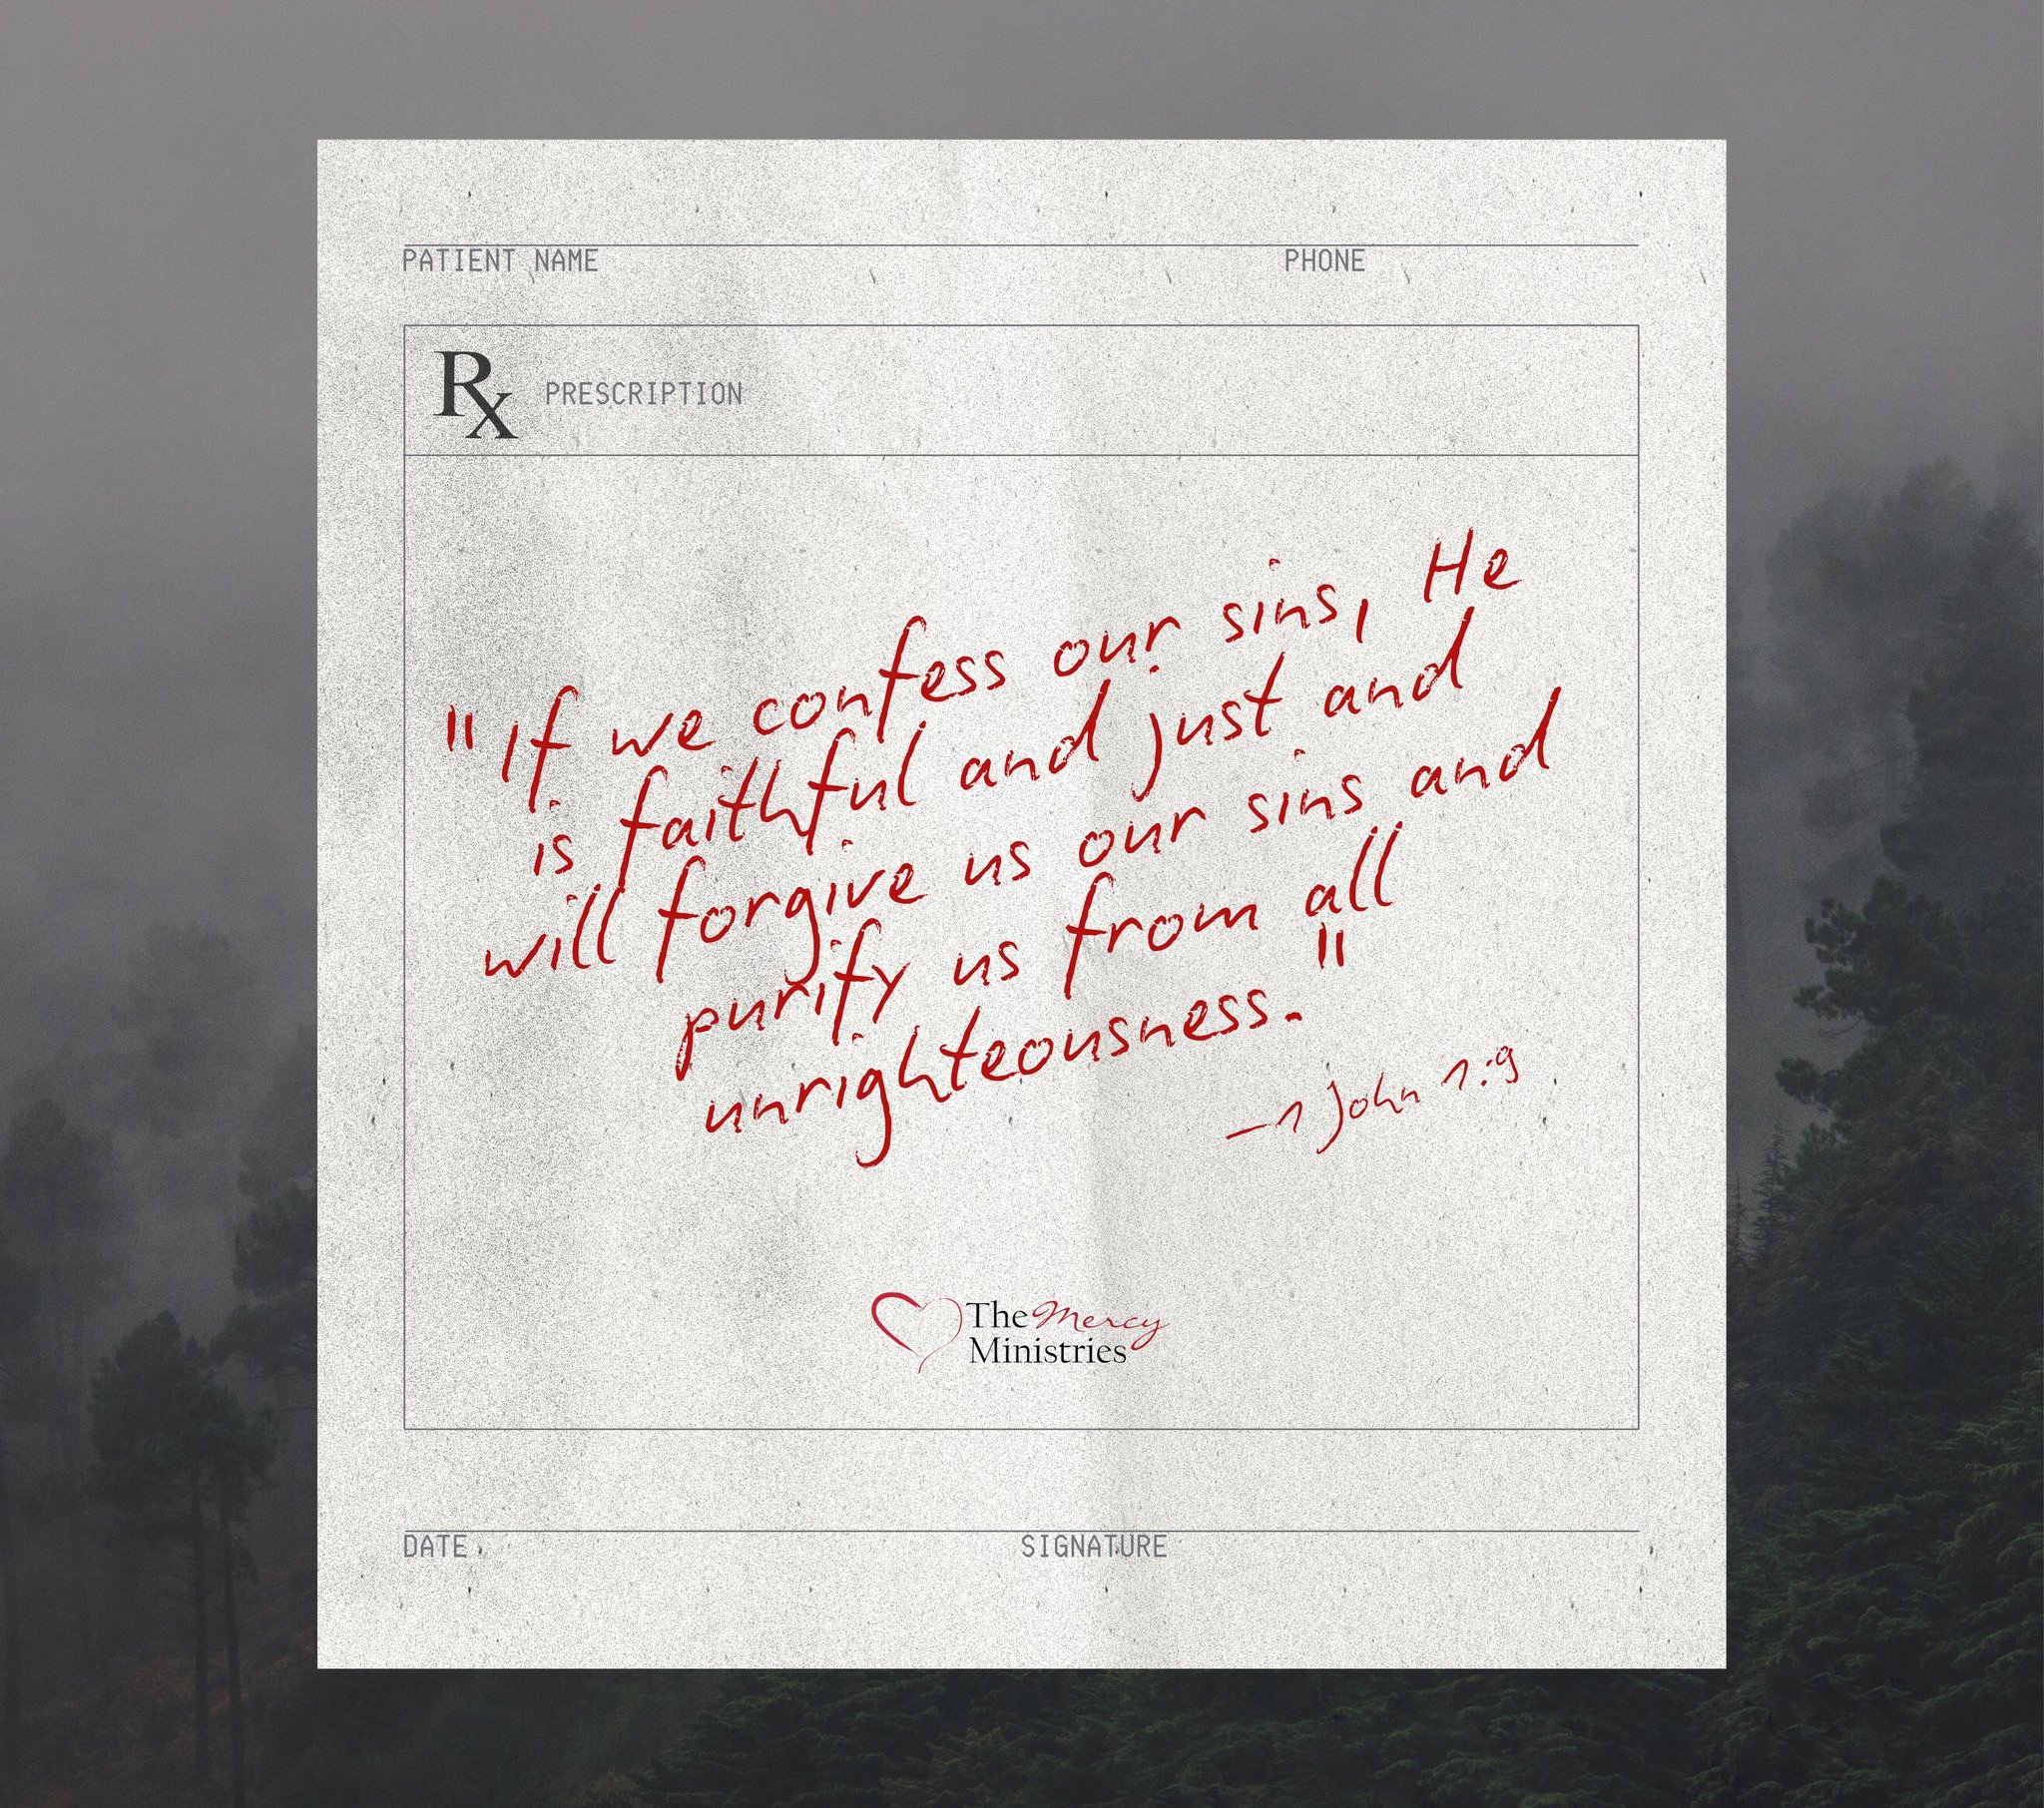 PATIENT NAME PHONE
Rx PRESCRIPTION
"If we confess our sins, He
is faithful and just and
will forgive us our sins and
purify us from all
unrighteousness."
—1 John 1:9
The Mercy
Ministries
DATE SIGNATURE